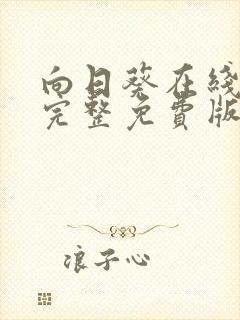 向日葵在线
完整免费版
浪子心